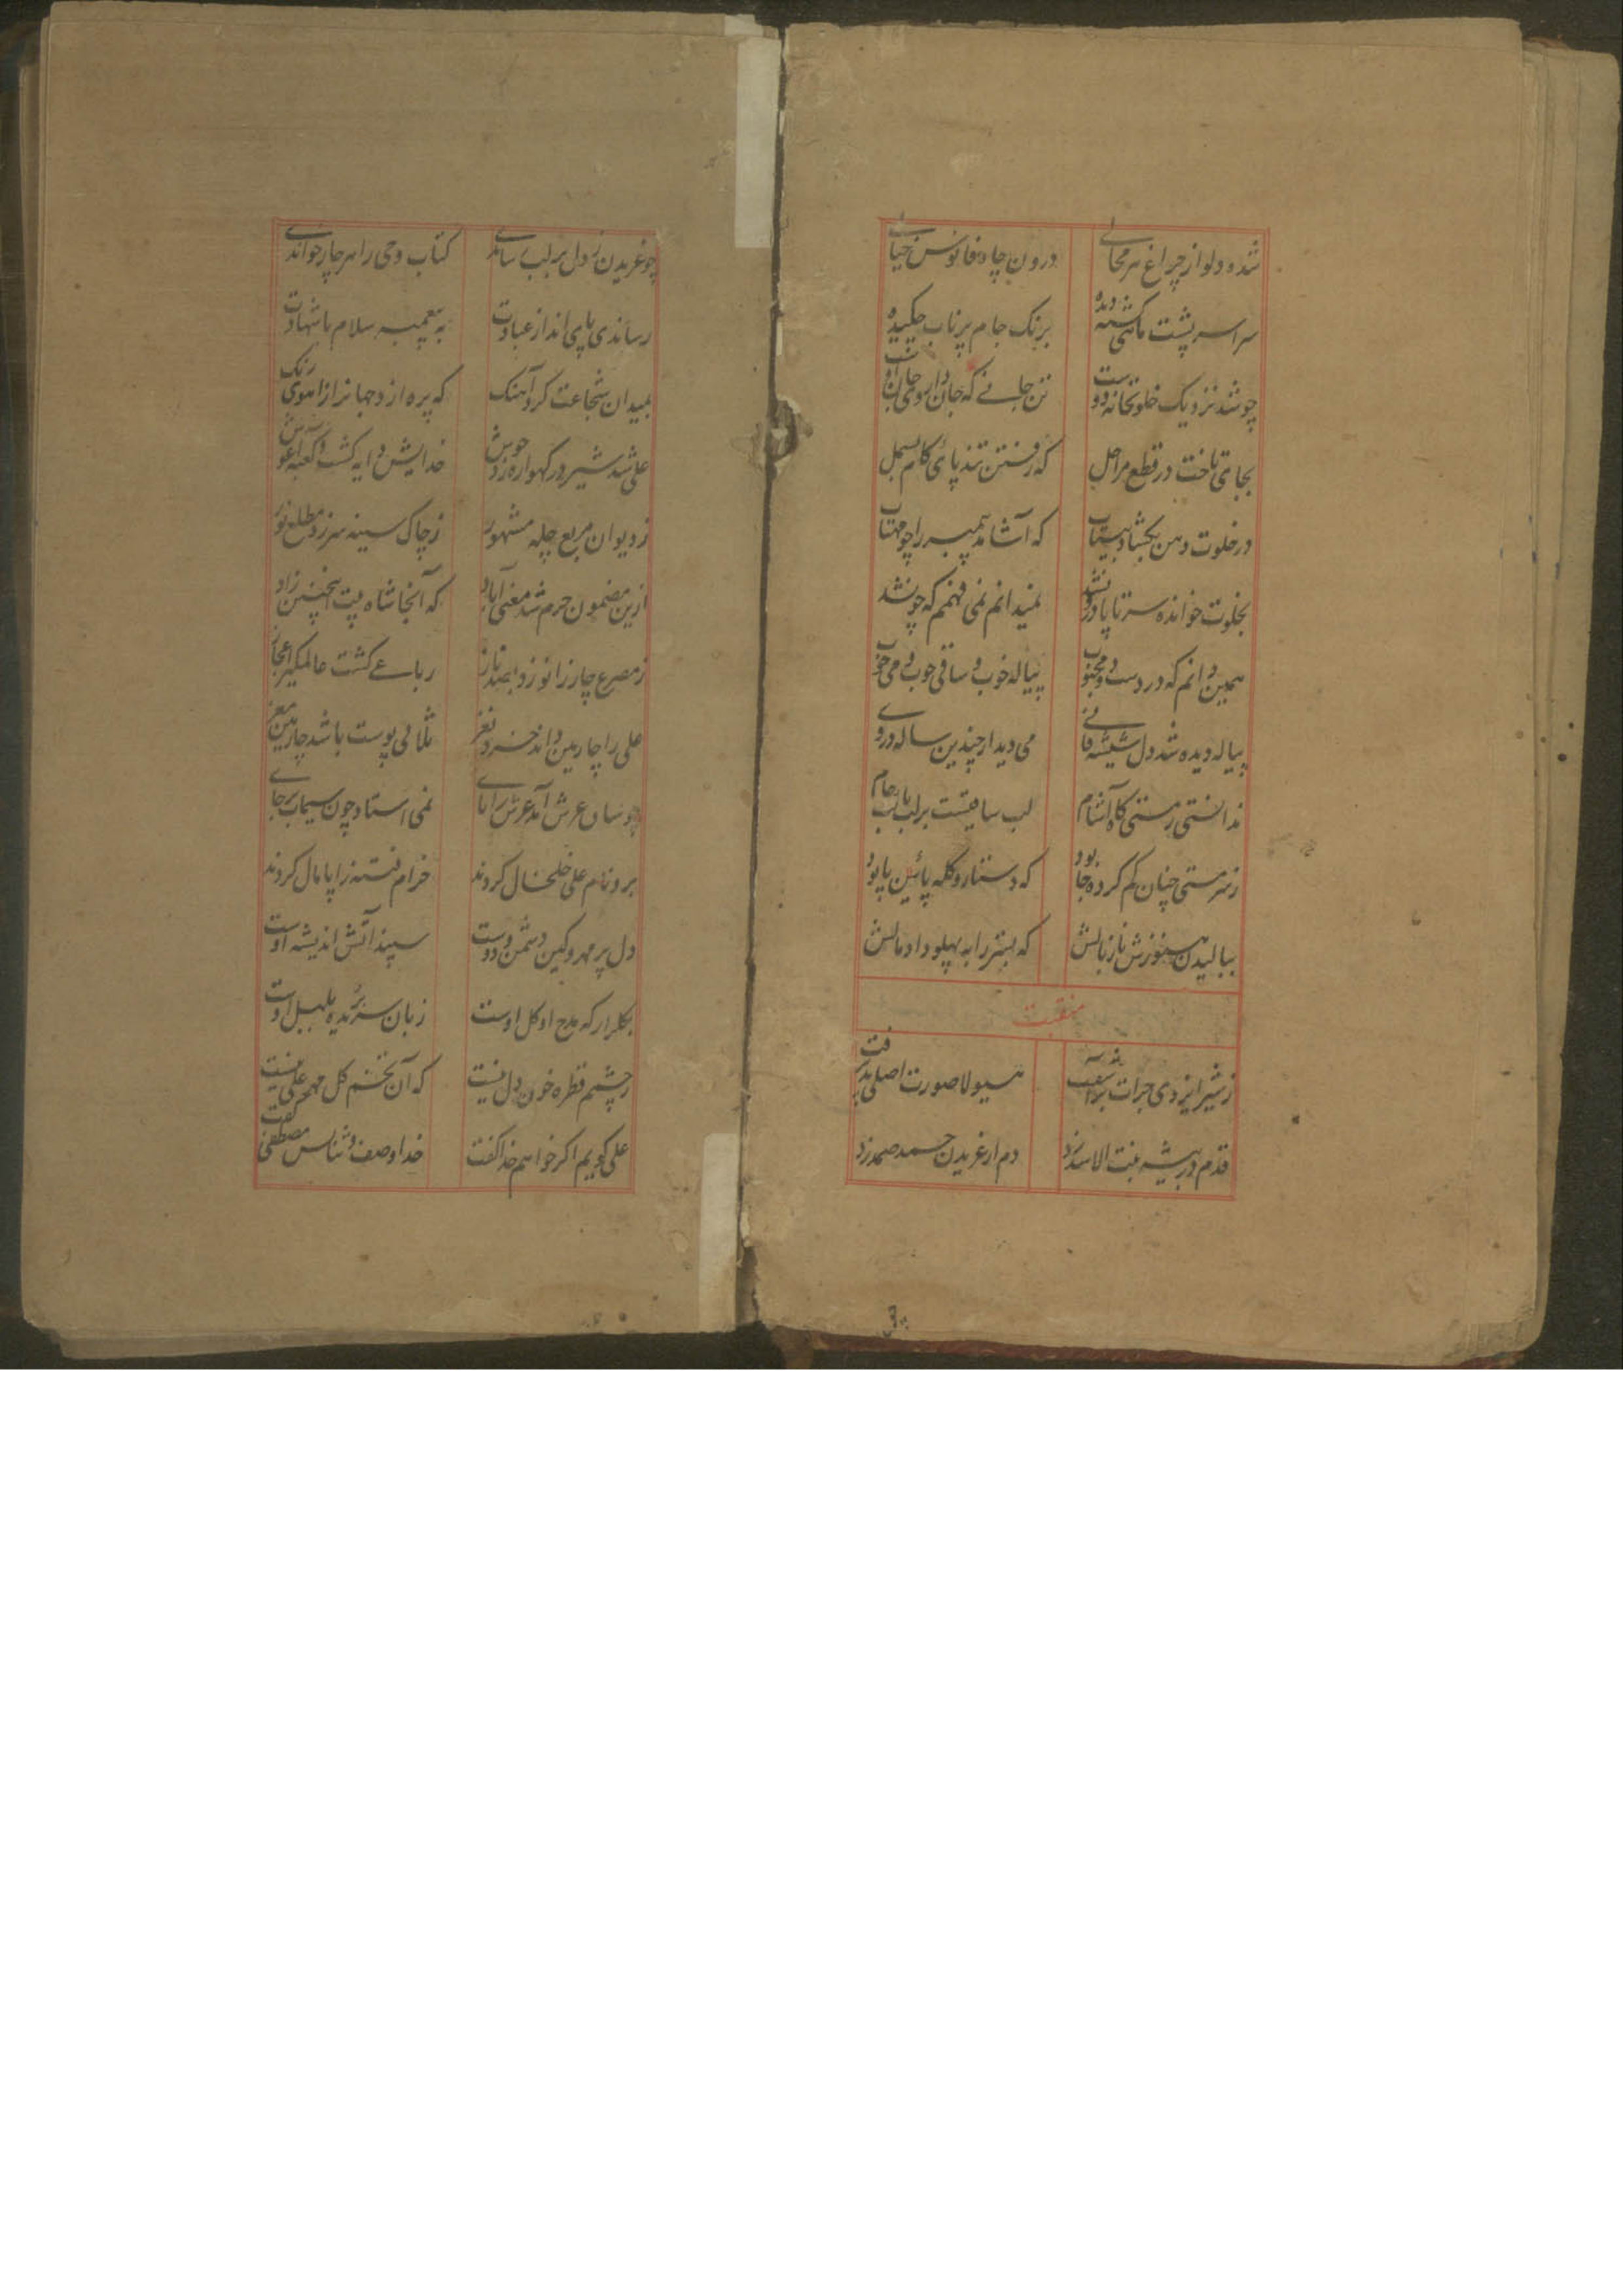 شد و دلو از چراغ هر مجالی درون چاه فانوس خیالی
سراسر پشت ماهی گشته دیده برنگ جام پرناب چکیده
چو شد نزدیک خلوتخانه دوست تن جانی که جان
بجا می تاخت در قطع مراحل که رفتن تند پای کام بسمل
در خلوت دهن بگشاد بیتاب که آشامد پیمبر را چو مهتاب
بخلوت خوانده سر تا پا درون شد نمیدانم نمی فهمم که چون شد
همین دانم که در دست و محبوب پیاله خوب و ساقی خوب و می خوب
پیاله دیده شد دل شیشه می دیدار چندین ساله در وی
ندانستی ز مستی گاه آشام لب ساقیست بر لب یا لب جام
ز سرمستی چنان گم کرده جا بود که دستار و کله پائین پا بود
ببالیدن هنوزش ناز بالش که بستر را به پهلو داد مالش
منقبت
ز شیر ایزدی جرات هیولا صورت اصلی
قدم در بیشه بنت الاسد زد دم از غریدن حمد صمد زد
چو غریدن ز دل بر لب رساندی کتاب وحی را هر چار خواندی
رساندی پای انداز عبادت به پیغمبر سلام با شهادت
بمیدان شجاعت کرد آهنگ که پره از دجهانرا ز آهوی رنگ
علی شد شیر در گهواره زد جوش خدایش دایه گشت و کعبه آغوش
ز دیوان مربع چله مشهور ز چاک سینه سر زد مطلع نور
ازین مضمون حرم شد معنی آباد که آنجا شاه بیت اینچنین زاد
ز مصرع چار زانو زد بصد ناز رباعی گشت عالمگیر اعجاز
علی را چارمین داند خرد نغز ثلاثی پوست باشد چارمین مغز
چو ساق عرش آمد عرش را پای نمی استاد چون سیماب بر جای
برو نام علی خلخال کردند خرام فتنه را پامال کردند
دل پر مهر و کین دشمن و دوست سپند آتش اندیشه اوست
بگلزار که مدح او گل اوست زبان سر بریده بلبل اوست
ز چشمم قطره خون دل نیست که آن تخم گل مهر علی نیست
علی گویم اگر خواهم خدا گفت خدا وصف و ثنایش مصطفی گفت